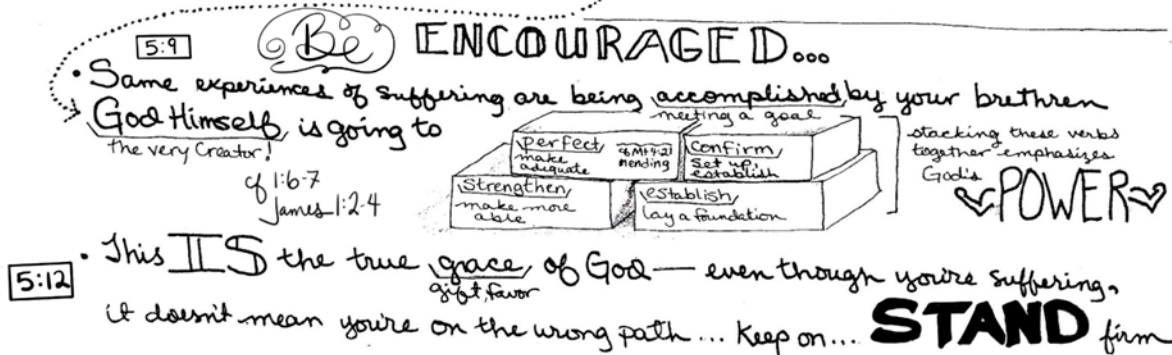 5:9
Be ENCOURAGED...
• Same experiences of suffering are being accomplished by your brethren
meeting a goal
God Himself is going to
the very Creator!
cf 1:6-7
James 1:2-4
perfect
make adequate
cf Mt 4:21
mending
confirm
set up,
establish
strengthen
make more
able
establish
lay a foundation
stacking these verbs
together emphasizes
God's
POWER
5:12
• This IS the true grace of God — even though you're suffering,
gift, favor
it doesn't mean you're on the wrong path... Keep on... STAND firm